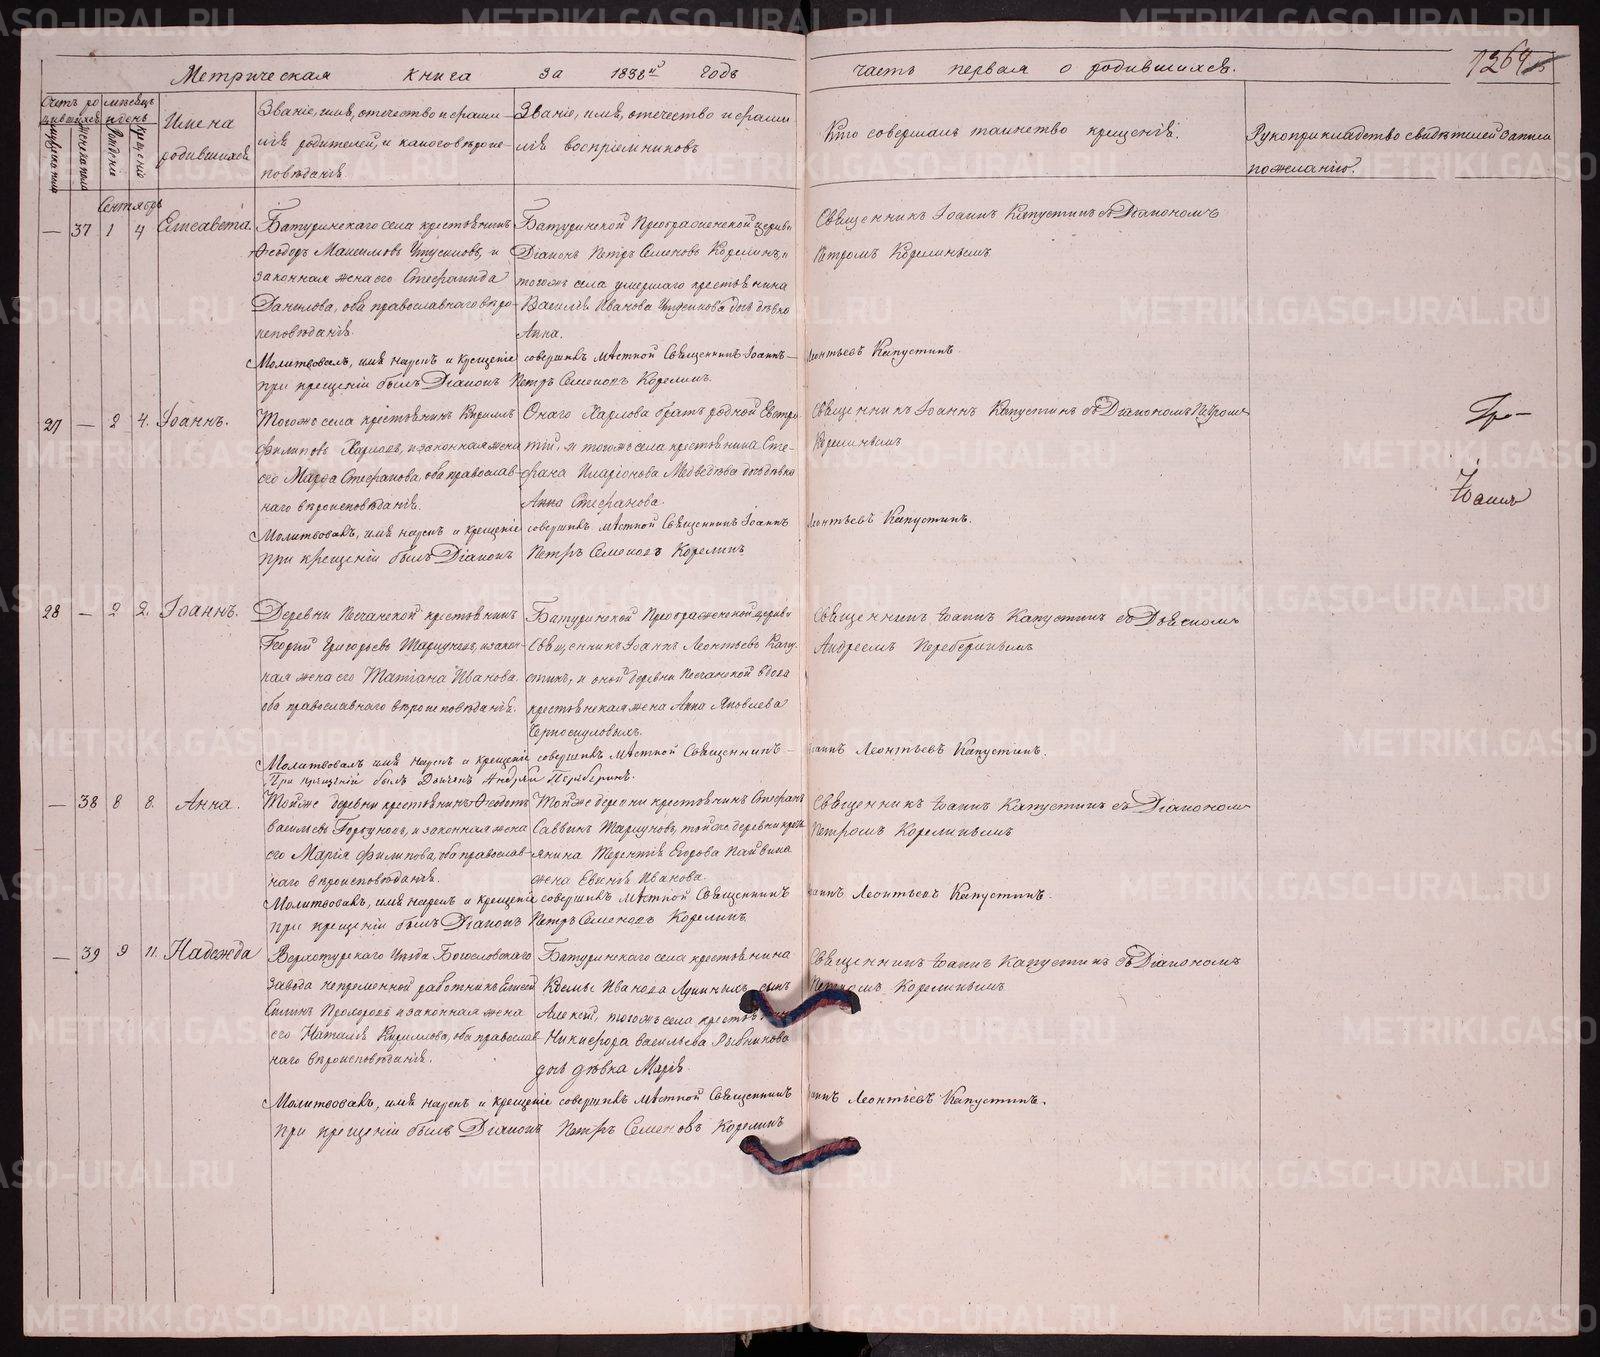 Метрическая книга за 1838й годъ
часть первая о родившихся.
1264
Счетъ родившихся
мѣсяцъ и день
мужска пола
женска пола
рожденія
крещенія
Имена родившихся
Званіе, имя, отечество и фамилія родителей, и какого вѣроисповѣданія
Званіе, имя, отечество и фамилія воспріемниковъ
Кто совершалъ таинство крещенія.
Рукоприкладство свидѣтелей записи по желанію.
Сентябрь
— 37 1 4 Елисавета
Батуринскаго села крестьянинъ
Ѳеодоръ Максимовъ и
законная жена его Степанида
Данилова, оба православнаго вѣро-
исповѣданія.
Батуринской Преображенской церкви
Діаконъ Петръ Семеновъ Корелинъ, и
тогожъ села умершаго крестьянина
Василія Иванова дочь дѣвка
Анна.
Священникъ Іоаннъ Капустинъ съ Діакономъ
Петромъ Корелинымъ
Молитвовалъ, имя нарекъ и крещеніе совершилъ мѣстной Священникъ Іоаннъ Леонтьевъ Капустинъ.
при крещеніи былъ Діаконъ Петръ Семеновъ Корелинъ.
27 — 2 4. Іоаннъ.
Тогожъ села крестьянинъ Кириллъ
Филиповъ Харловъ, и законная жена
его Марѳа Стефанова, оба православ-
наго вѣроисповѣданія.
Онаго Харлова братъ родной Евстра-
тій, и тогожъ села крестьянина Сте-
фана Иларіонова Медведева дочь дѣвка
Анна Стефанова.
Священникъ Іоаннъ Капустинъ съ Діакономъ Петромъ
Корелинымъ
Молитвовалъ, имя нарекъ и крещеніе совершилъ мѣстной Священникъ Іоаннъ Леонтьевъ Капустинъ.
При крещеніи былъ Діаконъ Петръ Семеновъ Корелинъ
Іоаннъ
28 — 2 2. Іоаннъ.
Деревни Песчанской крестьянинъ
Георгій Григорьевъ и закон-
ная жена его Татіана Иванова
оба православнаго вѣроисповѣданія.
Батуринской Преображенской церкви
Священникъ Іоаннъ Леонтьевъ Капу-
стинъ, и оной деревни Песчанской вдова
крестьянская жена Анна Яковлева
Священникъ Іоаннъ Капустинъ съ Дьячкомъ
Андреемъ Переберинымъ
Молитвовалъ имя нарекъ и крещеніе совершилъ мѣстной Священникъ Іоаннъ Леонтьевъ Капустинъ.
При крещеніи былъ Дьячекъ Андрей Переберинъ.
— 38 8 8. Анна.
Тойже деревни крестьянинъ Ѳедотъ
Васильевъ и законная жена
его Марія Филипова, оба православ-
наго вѣроисповѣданія.
Тойже деревни крестьянинъ Стефанъ
Саввинъ тойже деревни кресть-
янина Терентія Егорова Пайвина
жена Евгенія Иванова.
Священникъ Іоаннъ Капустинъ съ Діакономъ
Петромъ Корелинымъ
Молитвовалъ, имя нарекъ и крещеніе совершилъ мѣстной Священникъ Іоаннъ Леонтьевъ Капустинъ.
при крещеніи былъ Діаконъ Петръ Семеновъ Корелинъ.
— 39 9 11. Надежда
Верхотурскаго Уѣзда Богословскаго
завода непременной работникъ
Силинъ Прохоровъ и законная жена
его Наталія Кирилова, оба православ-
наго вѣроисповѣданія.
Батуринскаго села крестьянина
Козьмы Иванова сынъ
Алексій, тогожъ села крестьянина
Никифора Васильева Рыбникова
дочь дѣвка Марія.
Священникъ Іоаннъ Капустинъ съ Діакономъ
Петромъ Корелинымъ
Молитвовалъ, имя нарекъ и крещеніе совершилъ мѣстной Священникъ Іоаннъ Леонтьевъ Капустинъ.
При крещеніи былъ Діаконъ Петръ Семеновъ Корелинъ
METRIKI.GASO-URAL.RU